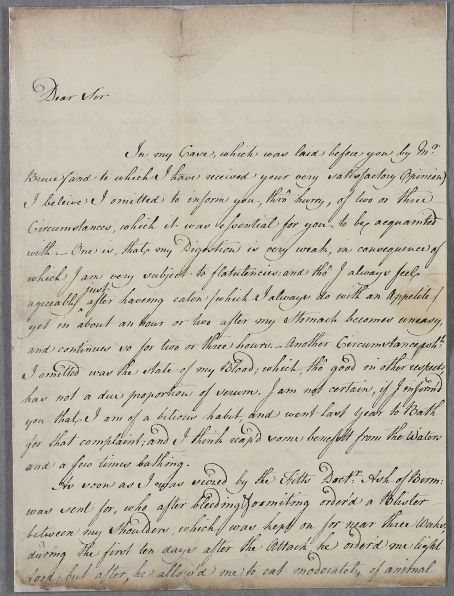 Dear Sir
In my Case, which was laid before you by Mr.
Bruce (and to which I have received your very satisfactory Openion)
I beleive I omitted to inform you, thro' hurry, of two or three
Circumstances, which it was essential for you to be acquainted
with. — One is, that my Digestion is very weak, in consequence of
which I am very subject to flatulencies; and tho' I always feel
just
agreiable after haveing eaten (which I always do with an Appetite)
yet in about an hour or two after my Stomach becomes uneasy,
and continues so for two or three hours. — Another Circumstance wh:
I omitted was the state of my Blood; which, tho' good in other respects,
has not a due proportion of serum. I am not certain, if I inform'd
you that I am of a bilious habit, and went last Year to Bath
for that complaint; and I think reap'd some benefit from the Waters
and a few times bathing.
As soon as I was seized by the Fitts Doctr. Ash of Birmm:
was sent for, who after bleeding & vomiting order'd a Blister
between my Shoulders, which was kept on for near three Weeks,
during the first ten days after the Attack, he order'd me light
food; but after, he allow'd me to eat moderately of animal